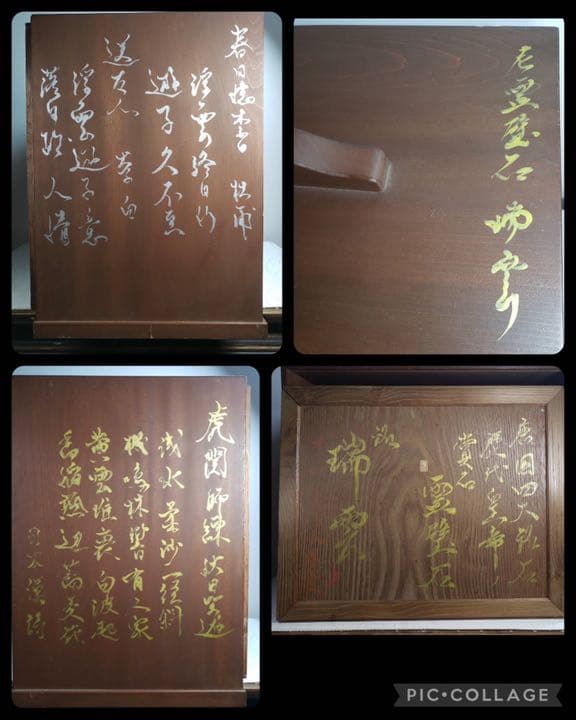 春日憶李白 杜甫
浮雲終日行
遊子久不至
送友人 李白
浮雲遊子意
落日故人情
霊璧石 瑞雲
虎関師練 秋日野遊
浅水柔沙一径斜
機鳴林響有人家
黄雲堆裏白波起
香稲熟辺蕎麦花
日本漢詩
唐国四大名石
歴代皇帝ノ
霊璧石
銘
瑞雲
PIC•COLLAGE